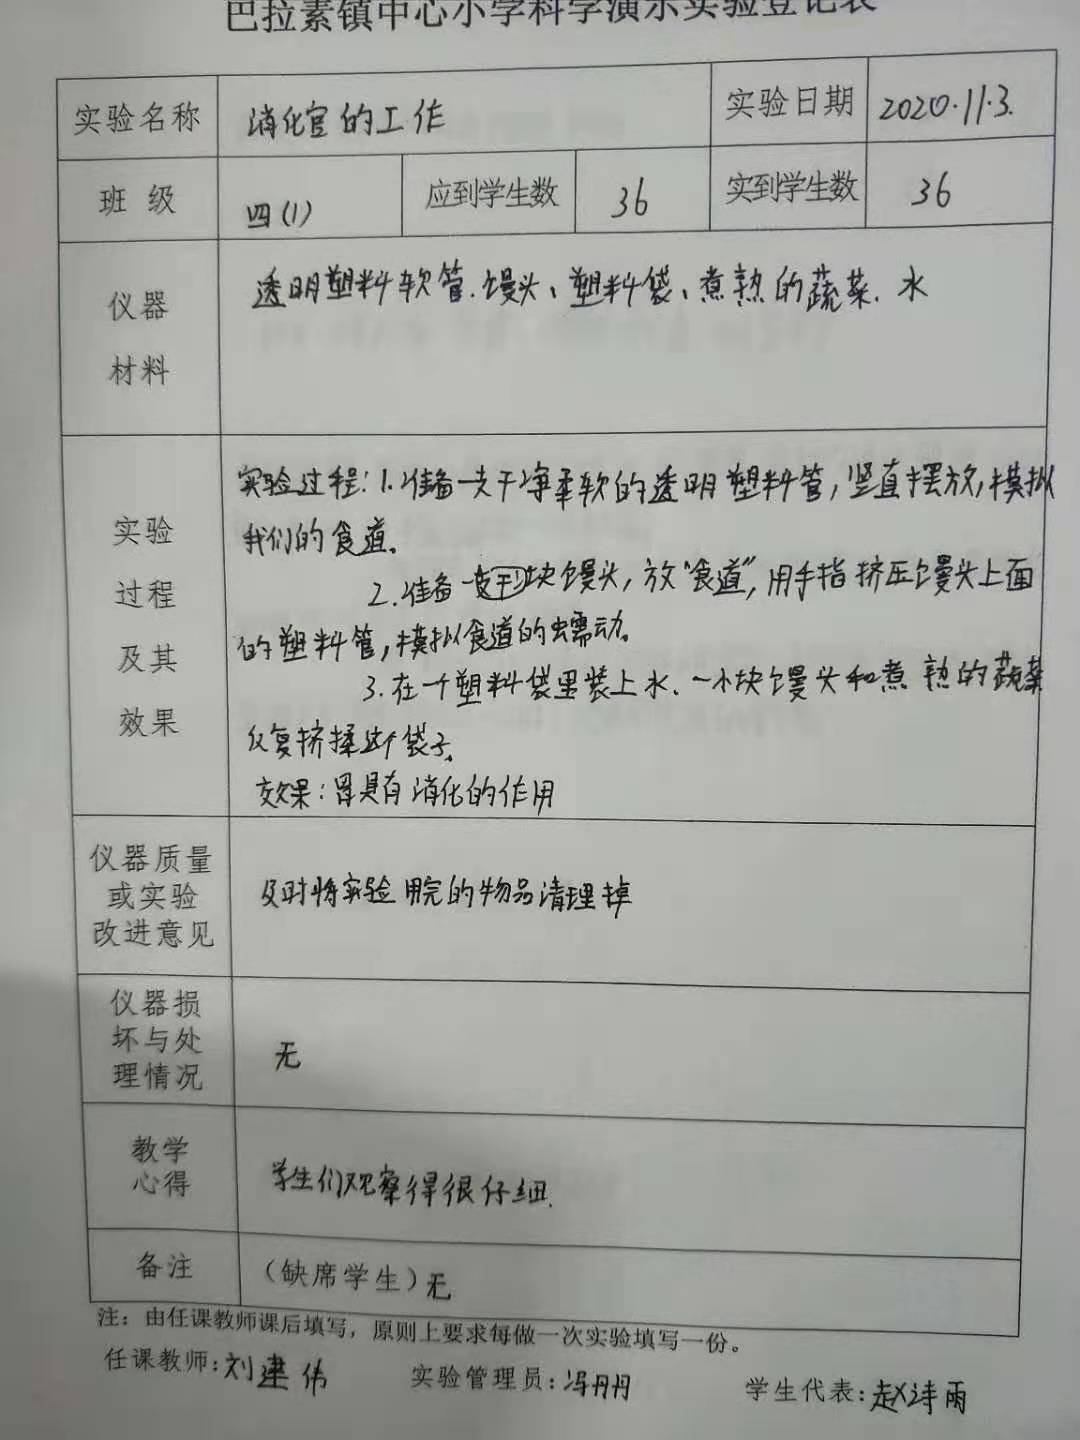 巴拉素镇中心小学科学演示实验登记表
实验名称 消化官的工作 实验日期 2020.11.3.
班 级 四(1) 应到学生数 36 实到学生数 36
仪器
材料
透明塑料软管.馒头、塑料袋、煮熟的蔬菜.水
实验
过程
及其
效果
实验过程:1.准备一支干净柔软的透明塑料管,竖直摆放,模拟
我们的食道.
2.准备一小块馒头,放“食道”,用手指挤压馒头上面
的塑料管,模拟食道的蠕动.
3.在一个塑料袋里装上水、一小块馒头和煮熟的蔬菜
反复挤揉这个袋子.
效果:胃具有消化的作用
仪器质量
或实验
改进意见
及时将实验用完的物品清理掉
仪器损
坏与处
理情况
无
教学
心得
学生们观察得很仔细.
备注 (缺席学生)无
注:由任课教师课后填写,原则上要求每做一次实验填写一份。
任课教师:刘建伟 实验管理员:冯丹丹 学生代表:赵诗雨